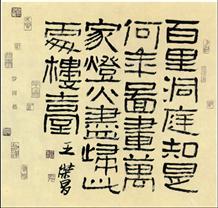 百里洞庭知是
何年圖畫萬
家燈火盡歸此
處樓臺
王